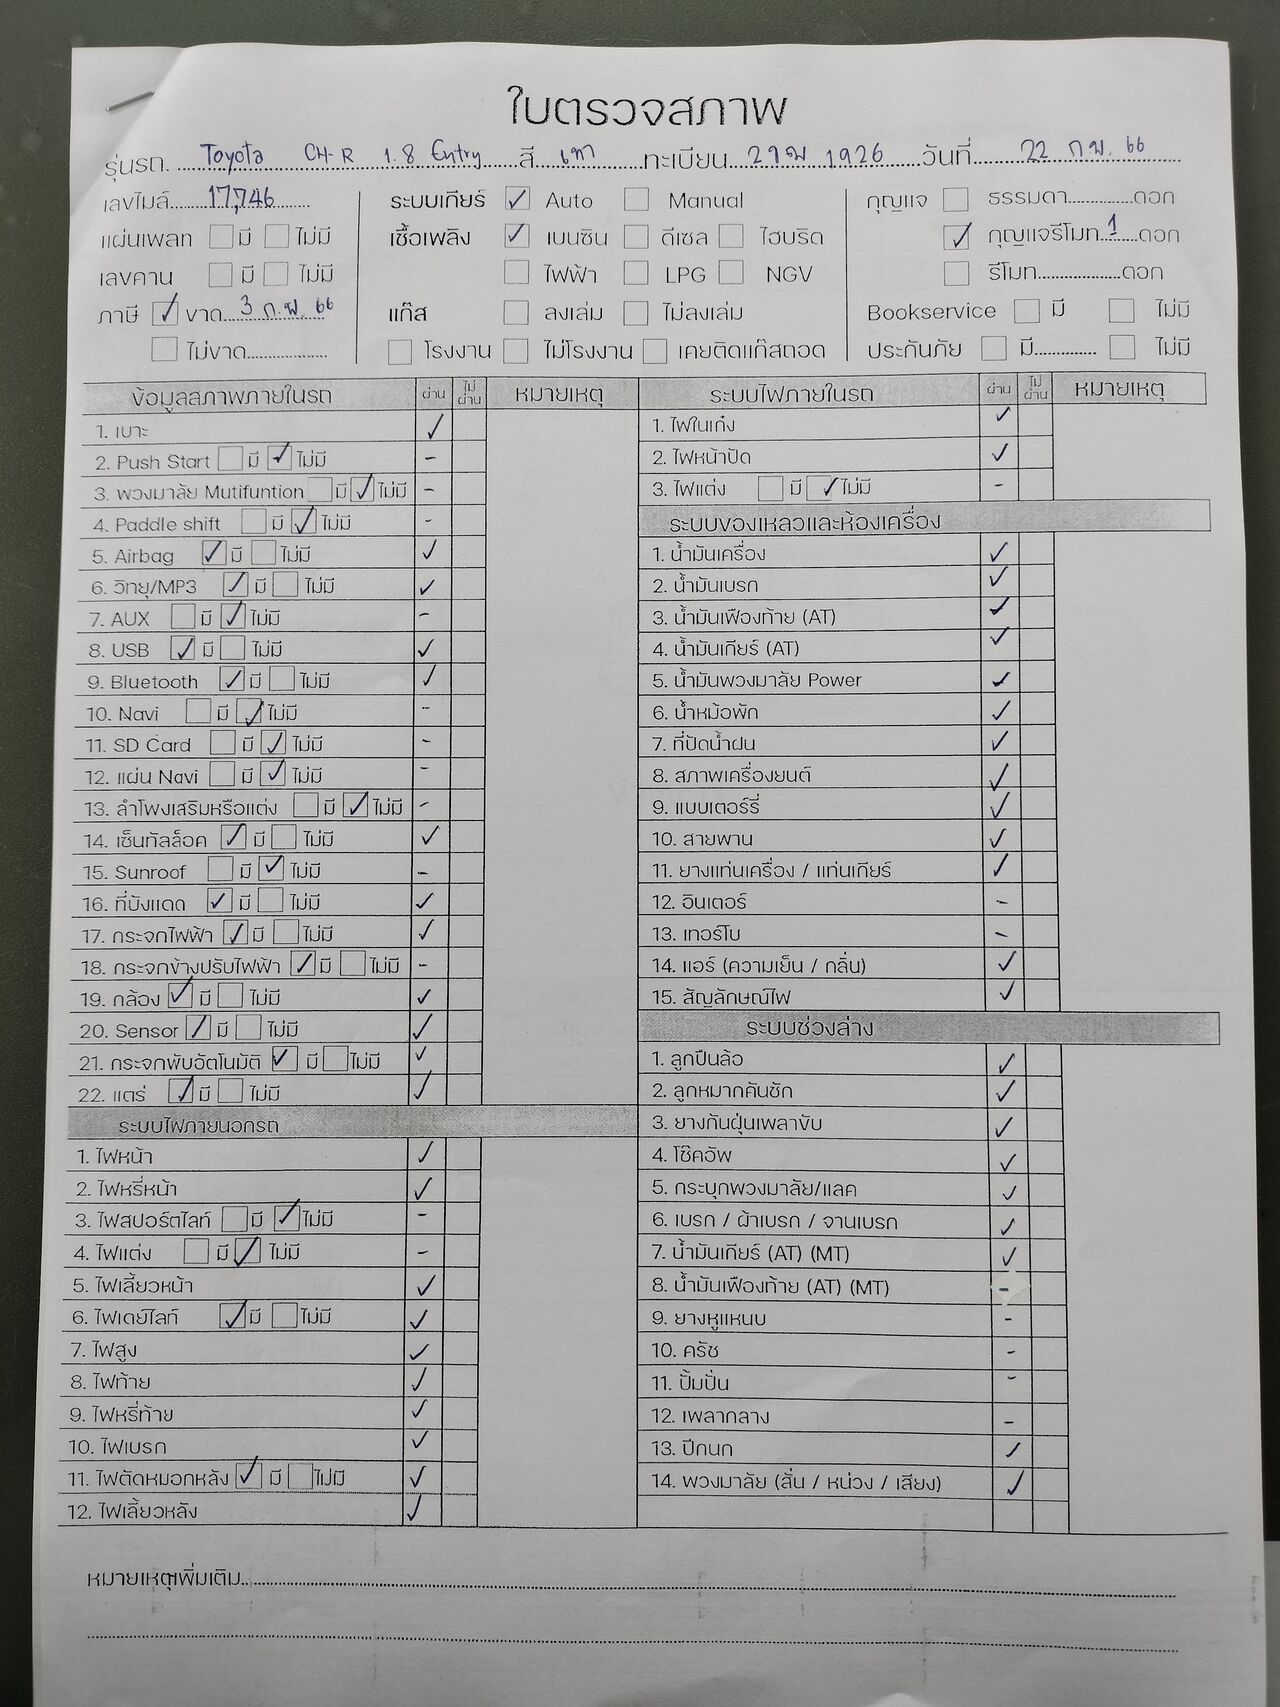 ใบตรวจสภาพ
รุ่นรถ Toyota CH-R 1.8 Entry สี เทา ทะเบียน 2าฒ 1926 วันที่ 22 ก.พ. 66
เลขไมล์ 17,746 ระบบเกียร์ ✓ Auto Manual กุญแจ ธรรมดา ดอก
แผ่นเพลท มี ไม่มี เชื้อเพลิง ✓ เบนซิน ดีเซล ไฮบริด ✓ กุญแจรีโมท 1 ดอก
เลขคาน มี ไม่มี ไฟฟ้า LPG NGV รีโมท ดอก
ภาษี ✓ ขาด 3 ก.พ. 66 แก๊ส ลงเล่ม ไม่ลงเล่ม Bookservice มี ไม่มี
ไม่ขาด โรงงาน ไม่โรงงาน เคยติดแก๊สถอด ประกันภัย มี ไม่มี
ข้อมูลสภาพภายในรถ ผ่าน ไม่ผ่าน หมายเหตุ
1. เบาะ ✓
2. Push Start มี ✓ ไม่มี -
3. พวงมาลัย Mutifuntion มี ✓ ไม่มี -
4. Paddle shift มี ✓ ไม่มี -
5. Airbag ✓ มี ไม่มี ✓
6. วิทยุ/MP3 ✓ มี ไม่มี ✓
7. AUX มี ✓ ไม่มี -
8. USB ✓ มี ไม่มี ✓
9. Bluetooth ✓ มี ไม่มี ✓
10. Navi มี ✓ ไม่มี -
11. SD Card มี ✓ ไม่มี -
12. แผ่น Navi มี ✓ ไม่มี -
13. ลำโพงเสริมหรือแต่ง มี ✓ ไม่มี -
14. เซ็นทัลล็อค ✓ มี ไม่มี ✓
15. Sunroof มี ✓ ไม่มี -
16. ที่บังแดด ✓ มี ไม่มี ✓
17. กระจกไฟฟ้า ✓ มี ไม่มี ✓
18. กระจกข้างปรับไฟฟ้า ✓ มี ไม่มี -
19. กล้อง ✓ มี ไม่มี ✓
20. Sensor ✓ มี ไม่มี ✓
21. กระจกพับอัตโนมัติ ✓ มี ไม่มี ✓
22. แตร่ ✓ มี ไม่มี ✓
ระบบไฟภายนอกรถ
1. ไฟหน้า ✓
2. ไฟหรี่หน้า ✓
3. ไฟสปอร์ตไลท์ มี ✓ ไม่มี -
4. ไฟแต่ง มี ✓ ไม่มี -
5. ไฟเลี้ยวหน้า ✓
6. ไฟเดย์ไลท์ ✓ มี ไม่มี ✓
7. ไฟสูง ✓
8. ไฟท้าย ✓
9. ไฟหรี่ท้าย ✓
10. ไฟเบรก ✓
11. ไฟตัดหมอกหลัง ✓ มี ไม่มี ✓
12. ไฟเลี้ยวหลัง ✓
ระบบไฟภายในรถ ผ่าน ไม่ผ่าน หมายเหตุ
1. ไฟในเก๋ง ✓
2. ไฟหน้าปัด ✓
3. ไฟแต่ง มี ✓ ไม่มี -
ระบบของเหลวและห้องเครื่อง
1. น้ำมันเครื่อง ✓
2. น้ำมันเบรก ✓
3. น้ำมันเฟืองท้าย (AT) ✓
4. น้ำมันเกียร์ (AT) ✓
5. น้ำมันพวงมาลัย Power ✓
6. น้ำหม้อพัก ✓
7. ที่ปัดน้ำฝน ✓
8. สภาพเครื่องยนต์ ✓
9. แบบเตอร์รี่ ✓
10. สายพาน ✓
11. ยางแท่นเครื่อง / แท่นเกียร์ ✓
12. อินเตอร์ -
13. เทอร์โบ -
14. แอร์ (ความเย็น / กลิ่น) ✓
15. สัญลักษณ์ไฟ ✓
ระบบช่วงล่าง
1. ลูกปืนล้อ ✓
2. ลูกหมากคันชัก ✓
3. ยางกันฝุ่นเพลาขับ ✓
4. โช๊คอัพ ✓
5. กระบุกพวงมาลัย/แลค ✓
6. เบรก / ผ้าเบรก / จานเบรก ✓
7. น้ำมันเกียร์ (AT) (MT) ✓
8. น้ำมันเฟืองท้าย (AT) (MT) -
9. ยางหูแหนบ -
10. ครัช -
11. ปั้มปั่น -
12. เพลากลาง -
13. ปีกนก ✓
14. พวงมาลัย (สั่น / หน่วง / เสียง) ✓
หมายเหตุเพิ่มเติม